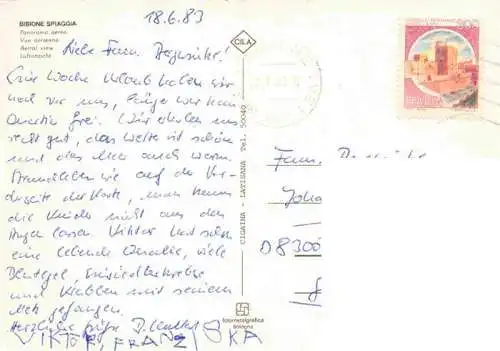 BIBIONE SPIAGGIA
Panorama aereo
Vue aerienne
Aerial view
Luftansicht
18.6.83
CILA
Liebe Fam.
Eine Woche Urlaub haben wir
noch vor uns, länger war kein
Quartier frei. Wir erholen uns
recht gut, das Wetter ist schön
und das Meer auch warm.
Strandleben wie auf der Vor-
derseite der Karte, man kann
die Kinder nicht aus den
Augen lassen. Viktor hat schon
eine lebende Qualle, viele
Blutegel Einsiedlerkrebse
und Krabben mit seinem
Netz gefangen.
Herzliche Grüße D.
VIKTOR, FRANZISKA
CIGAINA - LATISANA Tel. 50040
fotometalgrafica
Bologna
Fam.
Joha
D 8300